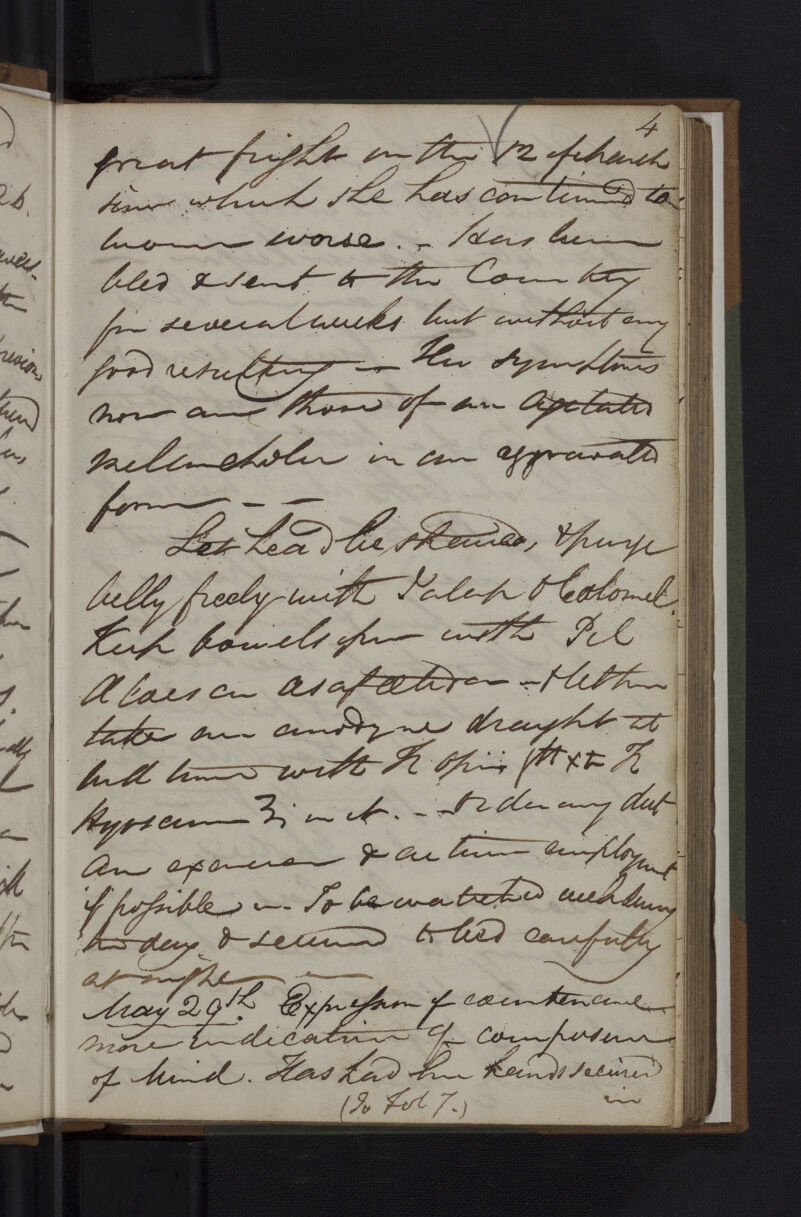 4
great fright on the 12 of March
since which she has continued to
become worse. - Has been
bled & sent to the Country
for several weeks but without any
good resulting - Her symptoms
now are those of an agitated
Melancholia in an aggravated
form - -
Let head be shaved, & purge
belly freely with Jalap & Calomel.
Keep bowels open with Pil
Aloes cu Asafœtida - & let her
take an anodyne draught at
bed time with Tr Opii gtt xx Tr
Hyosciam ʒj in it. - Ordinary diet
An exercise & active employment
if possible - To be watched well during
the day & secured to bed carefully
at night -
May 29th. Expression of countenance
more indication of composure
of Mind. Has had her hands secured
in
(To Fol 7.)